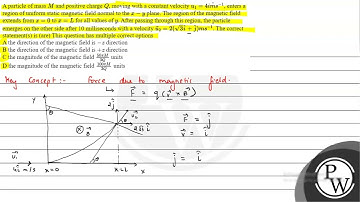 A particle of mass M and positive charge Q, moving with a constant velocity u₁ = 4î ms⁻¹, enters a
region of uniform static magnetic field normal to the x − y plane. The region of the magnetic field
extends from x = 0 to x = L for all values of y. After passing through this region, the particle
emerges on the other side after 10 milliseconds with a velocity u₂ = 2(√3î + ĵ)ms⁻¹. The correct
statement(s) is (are) This question has multiple correct options
A the direction of the magnetic field is −z direction
B the direction of the magnetic field is +z direction
C the magnitude of the magnetic field 50πM/3Q units
D the magnitude of the magnetic field is units
Key Concept:- Force due to magnetic field.
F = q(v × B)
Y
u₁
4î m/s
x=0
x=L
x
θ
B
2ĵ
2√3 î
F = ĵ
v = î
ĵ = î
P
W